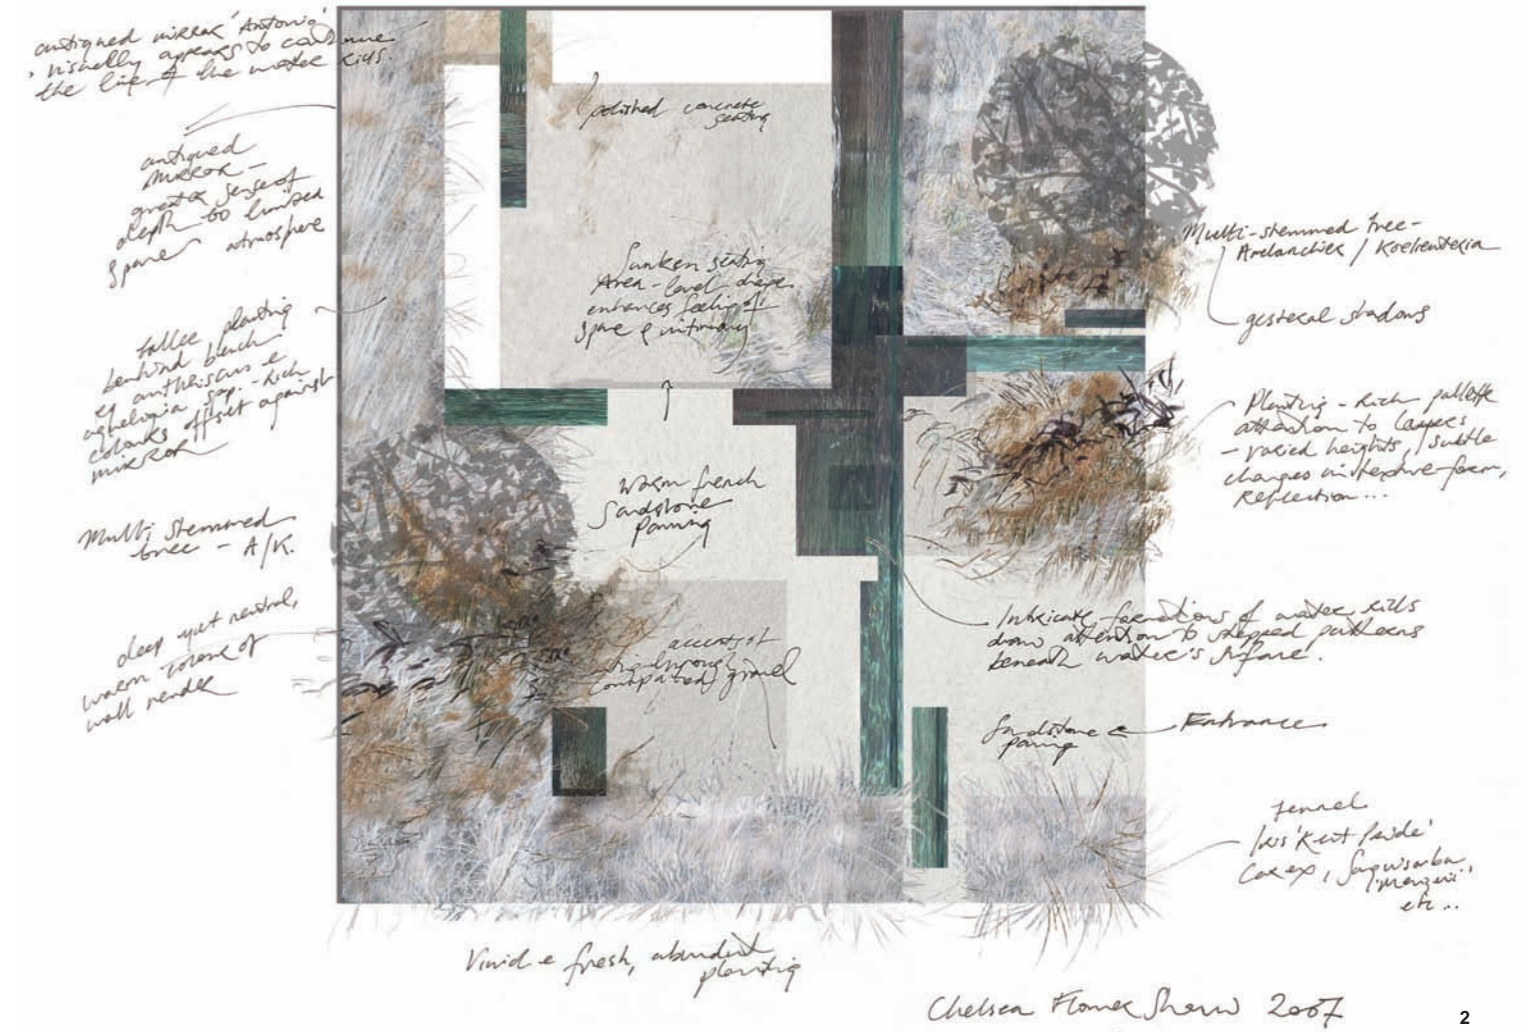 antiqued mirror 'Antonio'
, visually appears to continue
the line of the water rills.
antiqued
mirror -
greater sense of
depth to limited
space atmosphere
taller planting
behind bench
eg anthriscus e
aquilegia spp. - rich
colours offset against
mirror
Multi stemmed
tree - A/K.
deep yet neutral,
warm colour of
wall render
polished concrete
seating
Sunken seating
Area - level drops
enhances feeling of
space & intimacy
warm french
Sandstone
paving
accents of
through
compacted gravel
Multi-stemmed tree -
Amelanchier / Koelreuteria
gestural shadows
Planting - Rich pallette
attention to layers
- varied heights, subtle
changes in texture-form,
Reflection...
Intricate formations of water rills
draw attention to stepped patterns
beneath water's surface.
Sandstone
paving
Entrance
fennel
Iris 'Kent Pride'
Carex, Sanguisorba
'menzeii',
etc ...
Vivid e fresh, abundant
planting
Chelsea Flower Show 2007
2